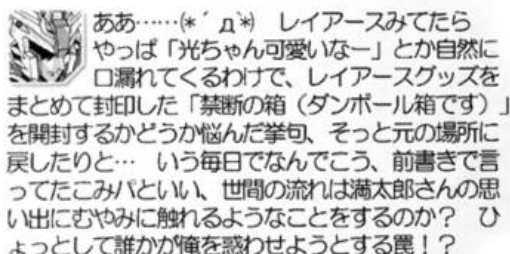 ああ……(*´д`*)　レイアースみてたら
やっぱ「光ちゃん可愛いなー」とか自然に
口漏れてくるわけで、レイアースグッズを
まとめて封印した「禁断の箱（ダンボール箱です）」
を開封するかどうか悩んだ挙句、そっと元の場所に
戻したりと…　いう毎日でなんでこう、前書きで言
ってたこみパといい、世間の流れは満太郎さんの思
い出にむやみに触れるようなことをするのか？　ひ
ょっとして誰かが俺を惑わせようとする罠！？